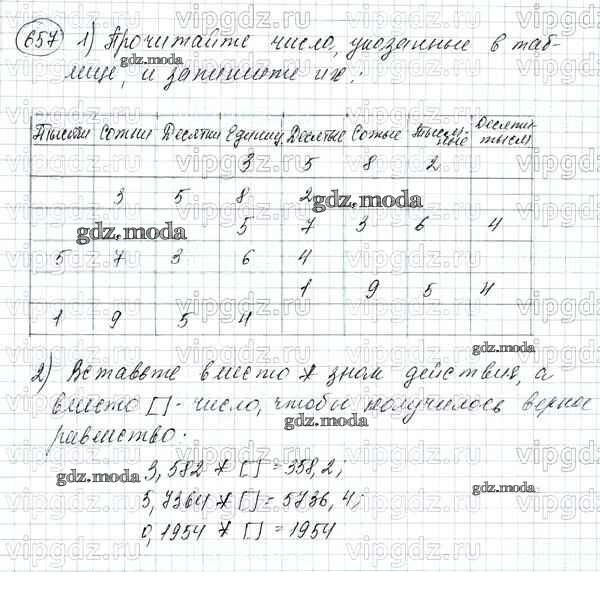 657 1) Прочитайте число, указанные в таб-
лице, и запишите их:
Тысячи Сотни Десятки Единиц. Десятые Сотые Тысяч-ные Десятитысяч
3 5 8 2
3 5 8 2
5 7 3 6 4
5 7 3 6 4
1 9 5 4
1 9 5 4
2) Вставьте вместо * знак действия, а
вместо [] - число, чтобы получилось верное
равенство:
3,582 * [] = 358,2;
5,7364 * [] = 5736,4;
0,1954 * [] = 1954
gdz.moda
gdz.moda
gdz.moda
gdz.moda
gdz.moda
gdz.moda
gdz.moda
vipgdz.ru